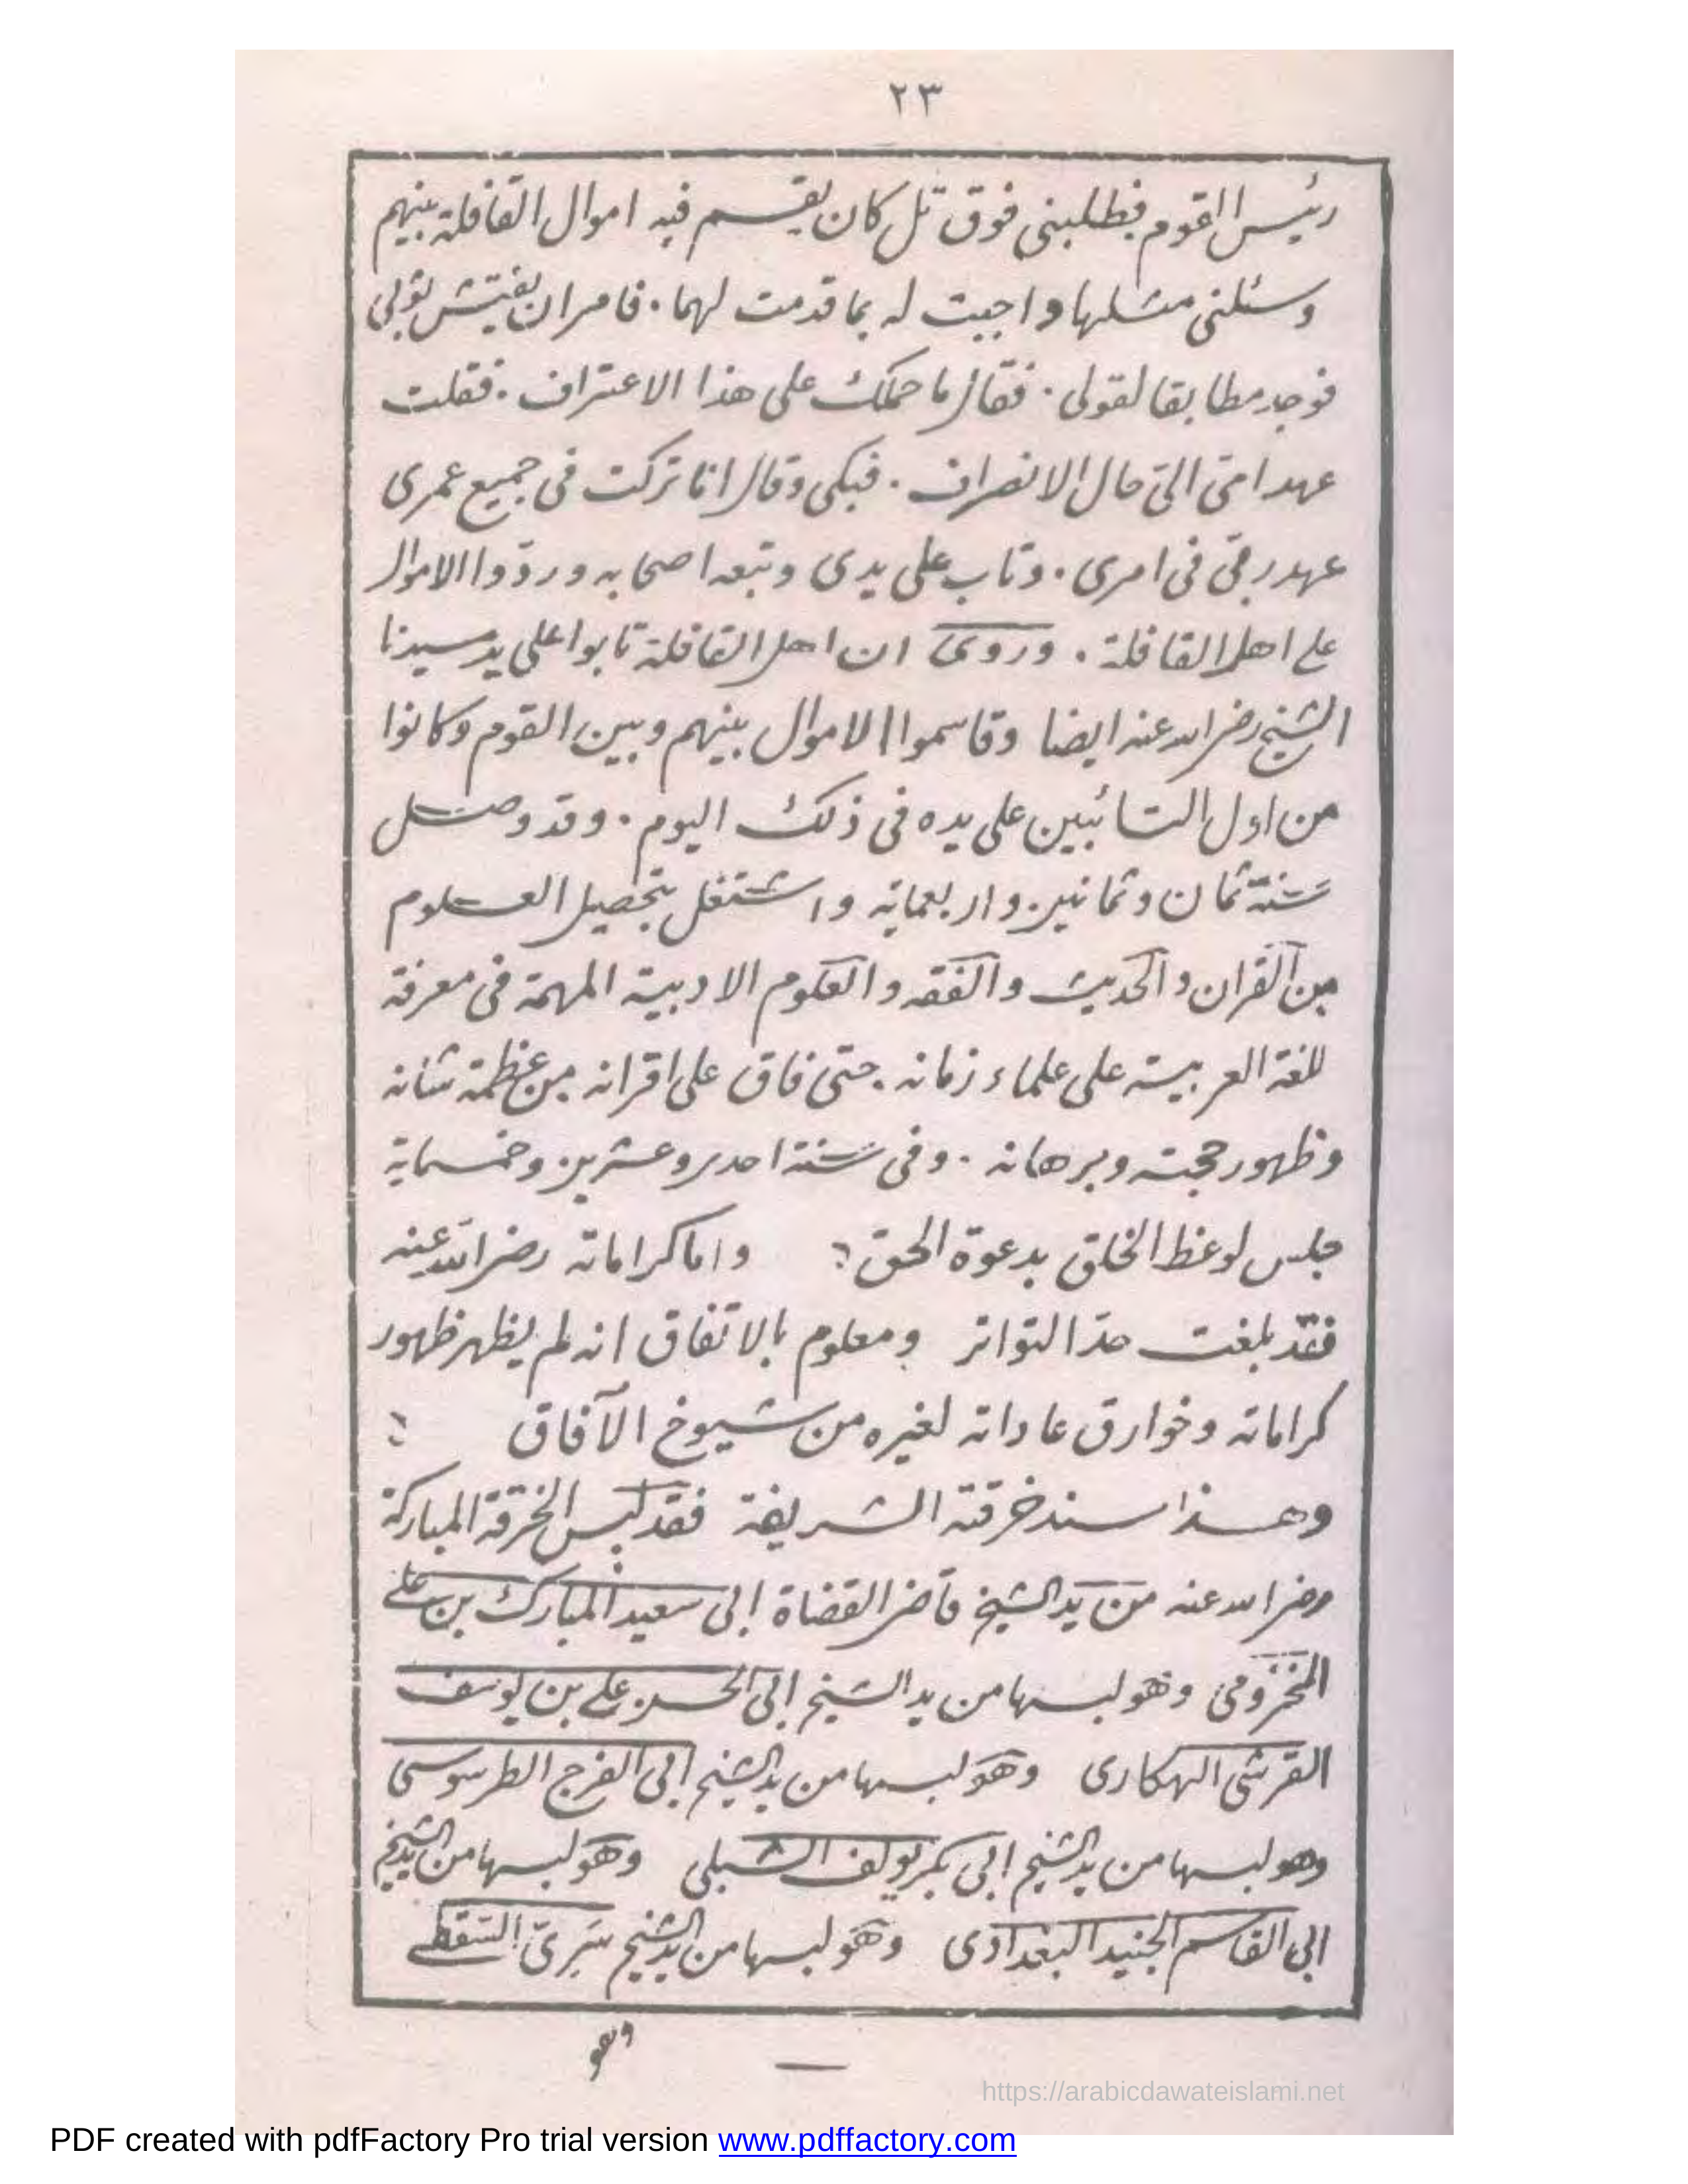 ٢٣
رئيس القوم فطلبنى فوق تل كان يقسم فيه اموال القافلة بينهم
وسئلنى مثلها واجبت له بما قدمت لهما. فامر ان يفتش ثوبى
فوجد مطابقا لقولى. فقال ما حملك على هذا الاعتراف. فقلت
عهد امى الىّ حال الانصراف. فبكى وقال انا تركت فى جميع عمرى
عهد ربى فى امرى. وتاب على يدى وتبعه اصحابه وردّوا الاموال
على اهل القافلة. وروى ان اهل القافلة تابوا على يد سيدنا
الشيخ رضى الله عنه ايضا وقاسموا الاموال بينهم وبين القوم وكانوا
من اول التائبين على يده فى ذلك اليوم. وقد وصل
سنة ثمان وثمانين واربعماية واشتغل بتحصيل العلوم
من القران والحديث والفقه والعلوم الادبية المهمة فى معرفة
للغة العربية على علماء زمانه. حتى فاق على اقرانه من عظمة شانه
وظهور حجته وبرهانه. وفى سنة احدى وعشرين وخمسماية
جلس لوعظ الخلق بدعوة الحق؛ واما كراماته رضى الله عنه
فقد بلغت حدّ التواتر ومعلوم بالاتفاق انه لم يظهر ظهور
كراماته وخوارق عاداته لغيره من شيوخ الآفاق ؛
وهذا سند خرقته الشريفة فقد لبس الخرقة المباركة
رضى الله عنه من يد الشيخ قاضى القضاة ابى سعيد المبارك بن على
المخزومى وهو لبسها من يد الشيخ ابى الحسن على بن يوسف
القرشى الهكارى وهو لبسها من يد الشيخ ابى الفرج الطرسوسى
وهو لبسها من يد الشيخ ابى بكر الشبلى وهو لبسها من يد الشيخ
ابى القاسم الجنيد البغدادى وهو لبسها من يد الشيخ سَرِىّ السَّقطى
وهو
https://arabicdawateislami.net
PDF created with pdfFactory Pro trial version www.pdffactory.com